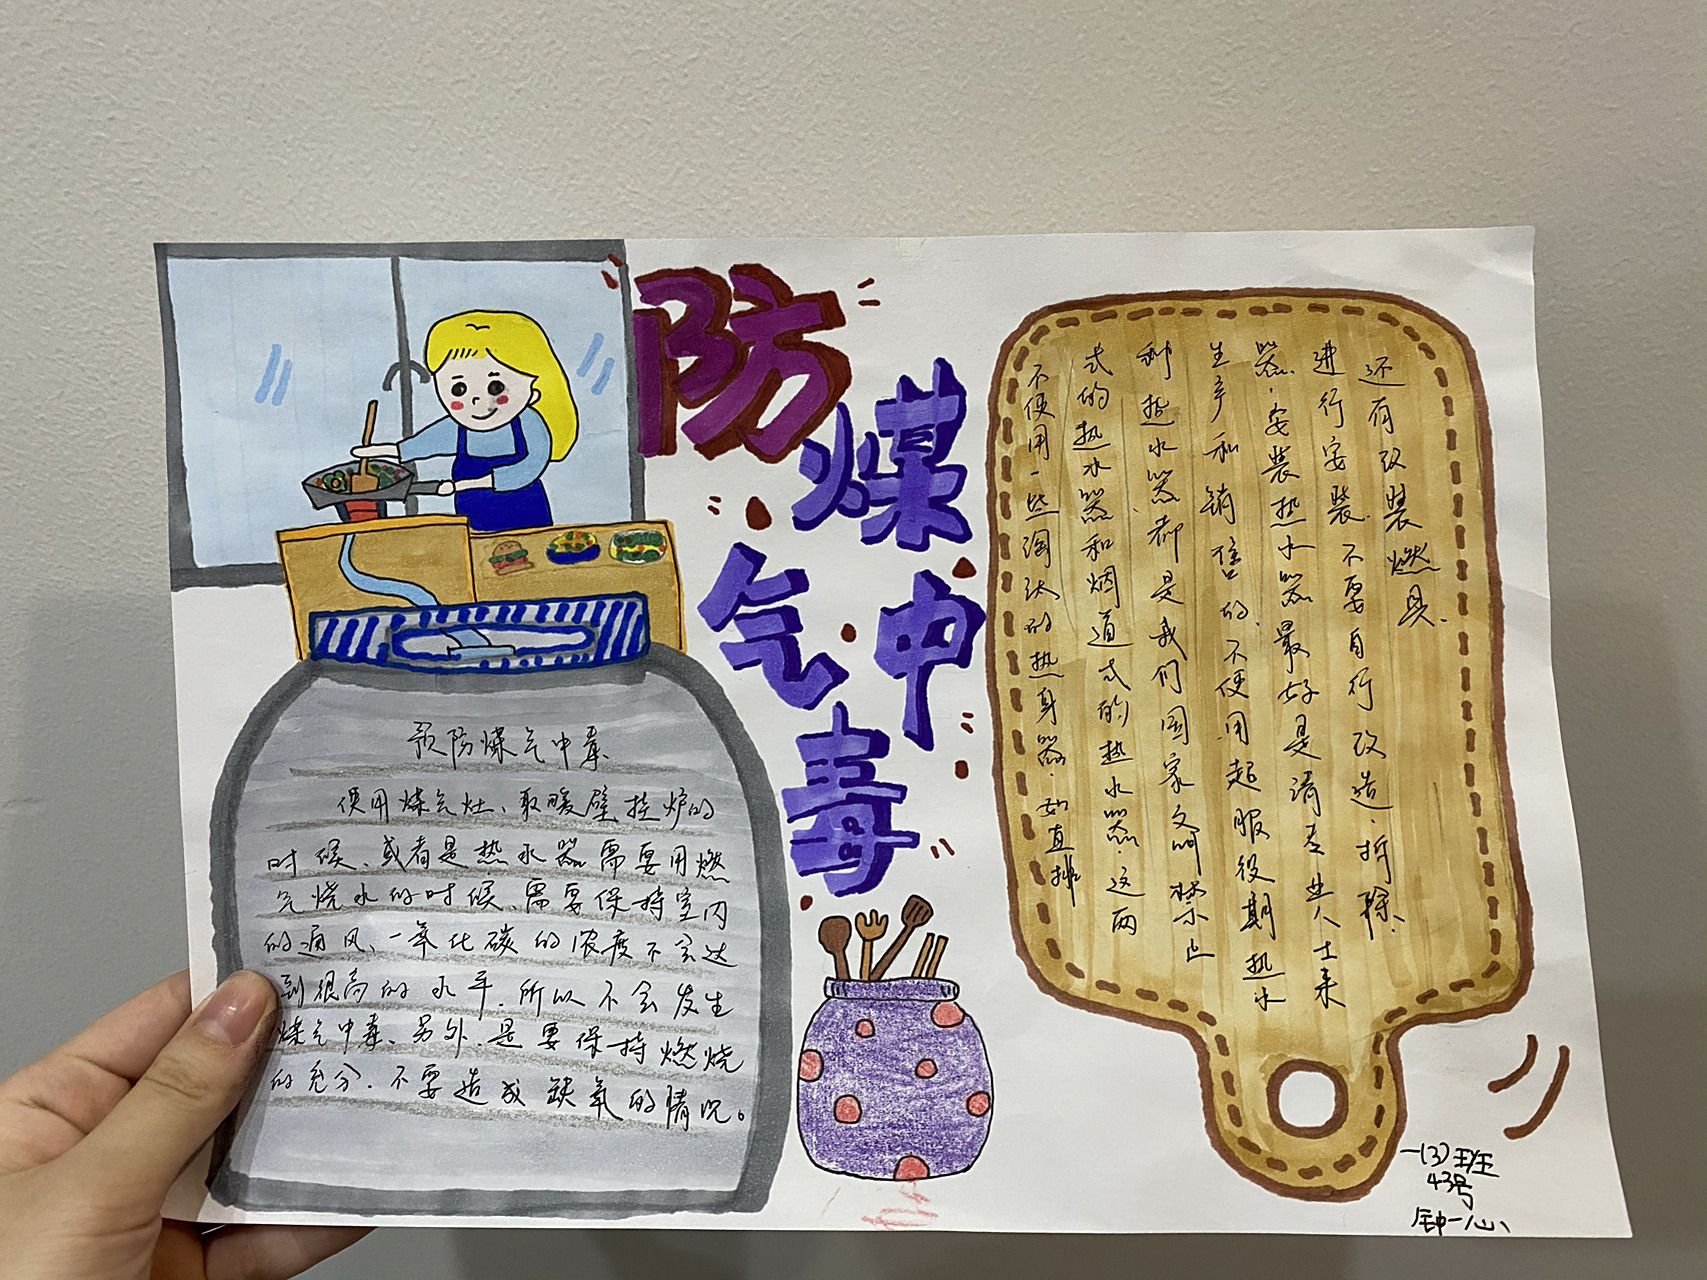 防煤
气中
毒
预防煤气中毒
使用煤气灶、取暖壁挂炉的
时候、或者是热水器需要用燃
气烧水的时候、需要保持室内
的通风、一氧化碳的浓度不会达
到很高的水平.所以不会发生
煤气中毒、另外.是要保持燃烧
的充分.不要造成缺氧的情况。
还有改装燃具.
进行安装.不要自行改造.拆除、
器.安装热水器最好是请专业人士来
生产和销售的.不使用超服役期热水
利热水器都是我们国家文明禁止
式的热水器和烟道式的热水器.这两
不使用一些淘汰的热身器.如直排
一(3)班
43号
钟一心